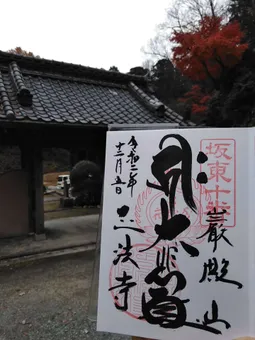 坂東十番
巖殿山
大悲
正法寺
令和二年
十二月五日